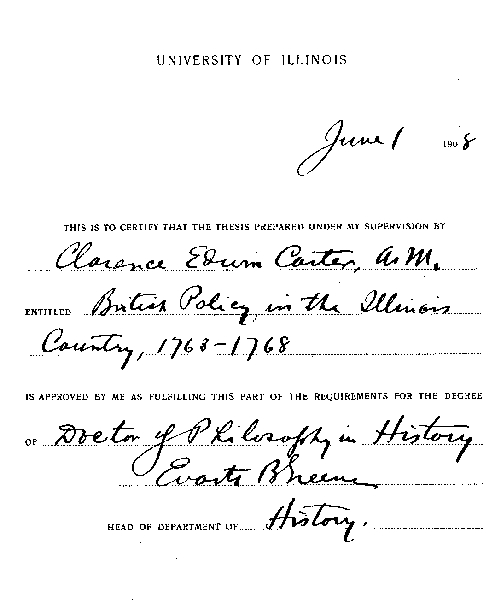 UNIVERSITY OF ILLINOIS
June 1 1908
THIS IS TO CERTIFY THAT THE THESIS PREPARED UNDER MY SUPERVISION BY
Clarence Edwin Carter, A.M.
ENTITLED British Policy in the Illinois
Country, 1763-1768
IS APPROVED BY ME AS FULFILLING THIS PART OF THE REQUIREMENTS FOR THE DEGREE
OF Doctor of Philosophy in History
Evarts B Greene
HEAD OF DEPARTMENT OF History.